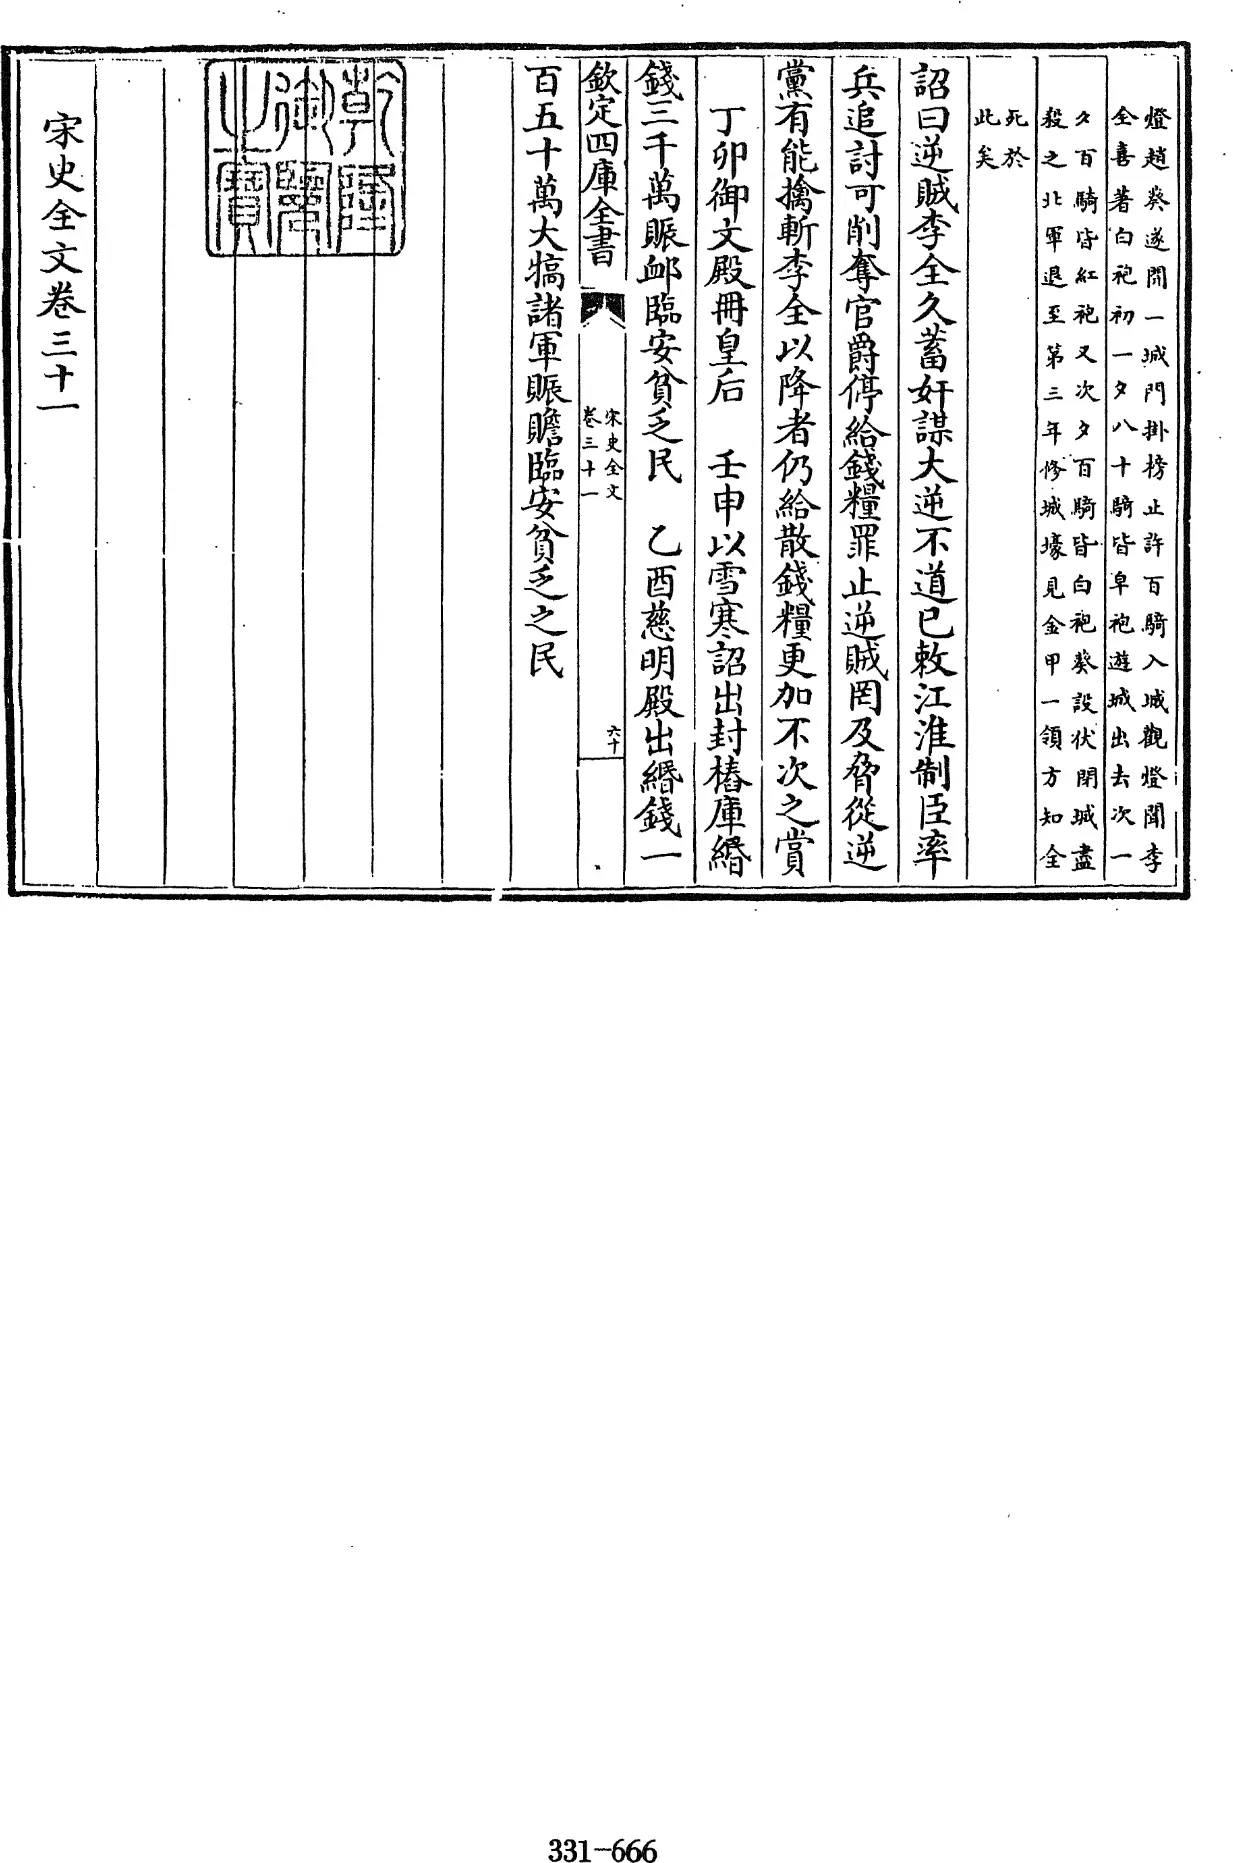 燈趙葵遂開一城門掛榜止許百騎入城觀燈聞李
全喜著白袍初一夕八十騎皆皁袍遊城出去次一
夕百騎皆紅袍又次夕百騎皆白袍葵設伏閉城盡
殺之北軍退至第三年修城壕見金甲一領方知全
死於
此矣
詔曰逆賊李全久蓄奸謀大逆不道已敕江淮制臣率
兵追討可削奪官爵停給錢糧罪止逆賊罔及脅從逆
黨有能擒斬李全以降者仍給散錢糧更加不次之賞
丁卯御文殿冊皇后 壬申以雪寒詔出封樁庫緡
錢三千萬賑卹臨安貧乏民 乙酉慈明殿出緡錢一
欽定四庫全書
宋史全文
卷三十一
六十
百五十萬大犒諸軍賑贍臨安貧乏之民
乾隆
御覽
之寶
宋史全文卷三十一
331-666